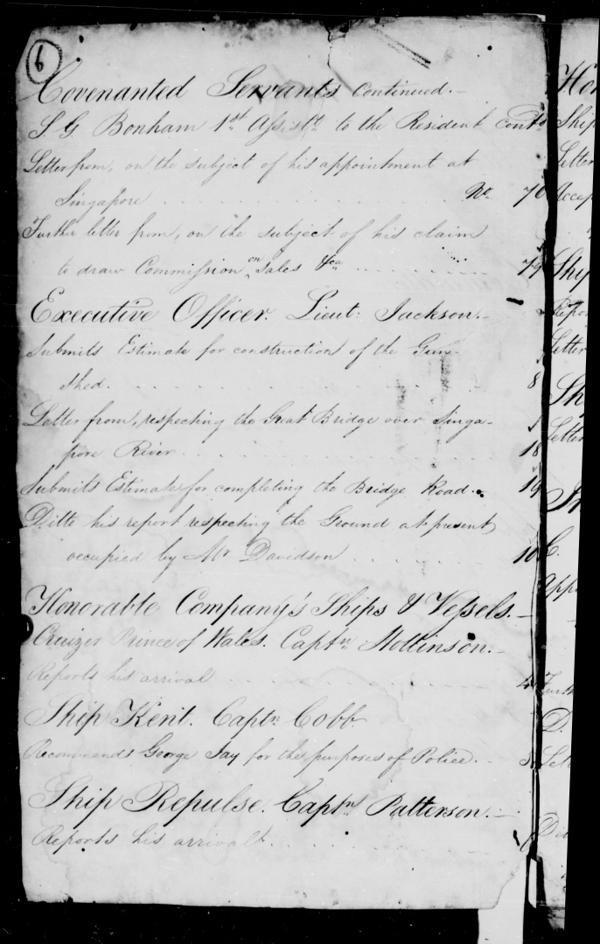 6
Covenanted Servants Continued.-
S G Bonham 1st Assistt to the Resident contd
Letter from, on the subject of his appointment at
Singapore . . . No 76
Further letter from, on the subject of his claim
to draw Commission on Sales &ca . . . 79
Executive Officer. Lieut: Jackson.-
Submits Estimate for construction of the Gun
Shed. . . . 8
Letter from, respecting the Great Bridge over Singa-
pore River. . . . 18
Submits Estimate for completing the Bridge Road. 19
Ditto his report respecting the Ground at present
occupied by Mr Davidson . . . 10
Honorable Company's Ships & Vessels.-
Cruizer Prince of Wales. Captn Mollinson.-
Reports his arrival . . . 4
Ship Kent. Captn Cobb.
Recommends George Jay for the purposes of Police. - 5
Ship Repulse. Captn Patterson.-
Reports his arrival. . . .